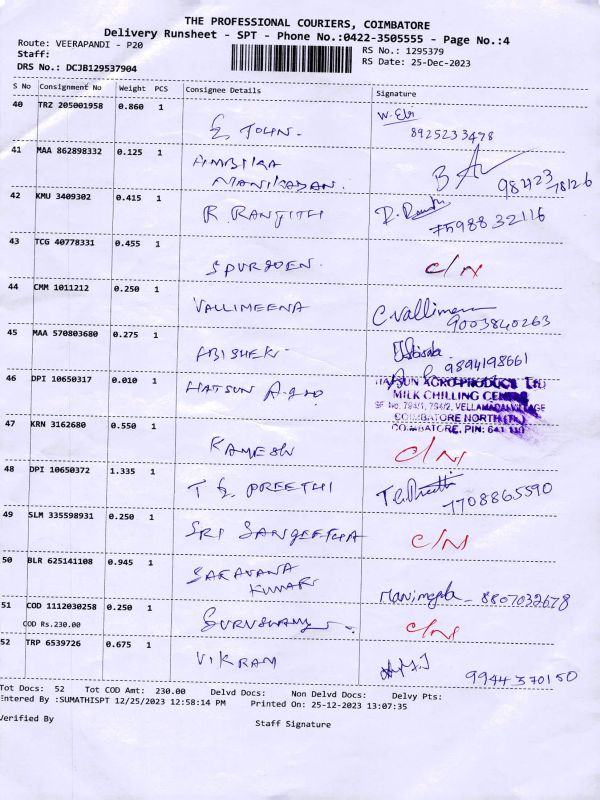 THE PROFESSIONAL COURIERS, COIMBATORE
Delivery Runsheet - SPT - Phone No.:0422-3505555 - Page No.:4
Route: VEERAPANDI - P20 RS No.: 1295379
Staff: RS Date: 25-Dec-2023
DRS No.: DCJB129537904
S No Consignment No Weight PCS Consignee Details Signature
40 TRZ 205001958 0.860 1 W. Ebi
E JOHN. 8925233478
41 MAA 862898332 0.125 1 AMBIKA
MANIKADAN. 98423 78126
42 KMU 3409302 0.415 1 R. RANJITH 7598832116
43 TCG 40778331 0.455 1
SPURGOEN. C/N
44 CMM 1011212 0.250 1 VALLIMEENA C.vallimeena
9003840263
45 MAA 570803680 0.275 1 ABISHEK 9894198661
46 DPI 10650317 0.010 1 HATSUN AGRO HATSUN AGRO PRODUCT Ltd
MILK CHILLING CENTRE
SF No. 794/1, 794/2, VELLAMADAI VILLAGE
COIMBATORE NORTH (TK)
COIMBATORE, PIN: 641 110
47 KRN 3162680 0.550 1
KAMESH C/N
48 DPI 10650372 1.335 1 T G PREETHI T G Preethi
7708865590
49 SLM 335598931 0.250 1 SRI SANGEETHA C/N
50 BLR 625141108 0.945 1 SARAVANA
KUMAR Manimegala - 8807032678
51 COD 1112030258 0.250 1 GURUSWAMY C/N
COD Rs.230.00
52 TRP 6539726 0.675 1 VIKRAM 9944370150
Tot Docs: 52 Tot COD Amt: 230.00 Delvd Docs: Non Delvd Docs: Delvy Pts:
Entered By :SUMATHISPT 12/25/2023 12:58:14 PM Printed On: 25-12-2023 13:07:35
Verified By Staff Signature